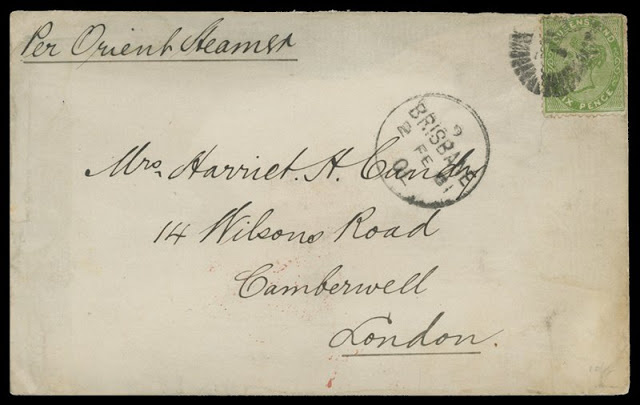 Per Orient Steamer
QUEENSLAND
SIX PENCE
BRISBANE
FE
Mrs. Harriet. H. Candy
14 Wilsons Road
Camberwell
London.